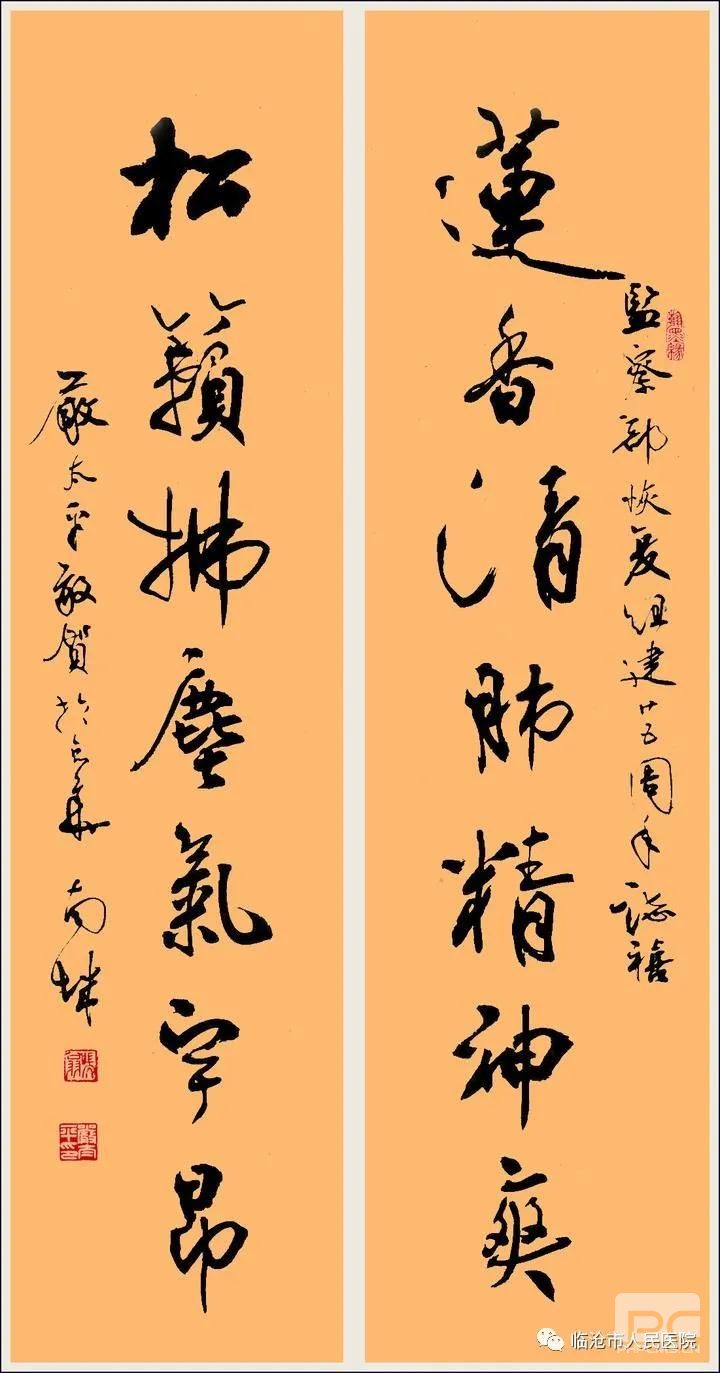 蓮香清肺精神爽
監察部恢复组建廿五周年誌禧
松籟拂塵氣宇昂
嚴太平敬賀於
南坤
临沧市人民医院